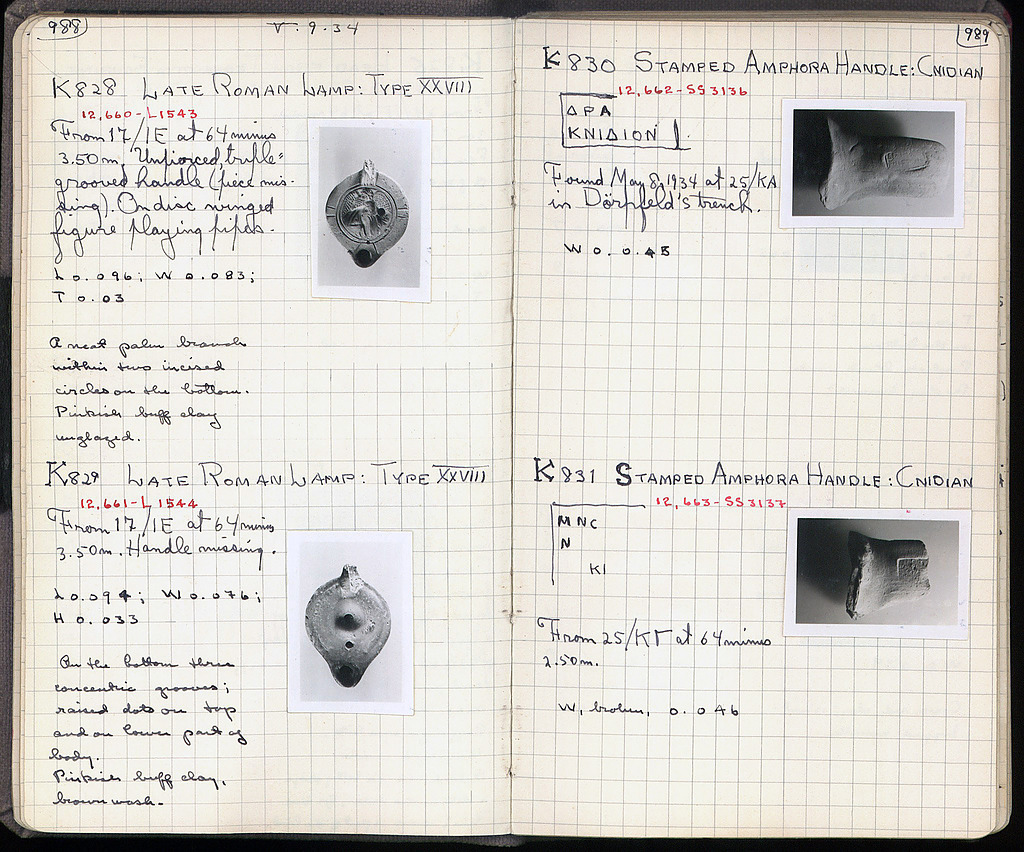 988
V. 9. 34
K828 LATE ROMAN LAMP: TYPE XXVIII
12,660-L1543
From 17/IE at 64 minus
3.50 m. Unpierced, triple-
grooved handle (piece mis-
sing). On disc winged
figure playing pipes.
L 0.096; W 0.083;
T 0.03
A neat palm branch
within two incised
circles on the bottom.
Pinkish buff clay
unglazed.
K829 LATE ROMAN LAMP: TYPE XXVIII
12,661-L1544
From 17/IE at 64 minus
3.50m. Handle missing.
L 0.094; W 0.076;
H 0.033
On the bottom three
concentric grooves;
raised dots on top
and on lower part of
body.
Pinkish buff clay,
brown wash.
989
K830 STAMPED AMPHORA HANDLE: CNIDIAN
12,662-SS3136
ΔΡΑ
ΚΝΙΔΙΟΝ
Found May 8, 1934 at 25/KA
in Dörpfeld's trench.
W 0.045
K831 STAMPED AMPHORA HANDLE: CNIDIAN
12,663-SS3137
ΜΝC
Ν
ΚΙ
From 25/ΚΓ at 64 minus
2.50m.
W, broken, 0.046